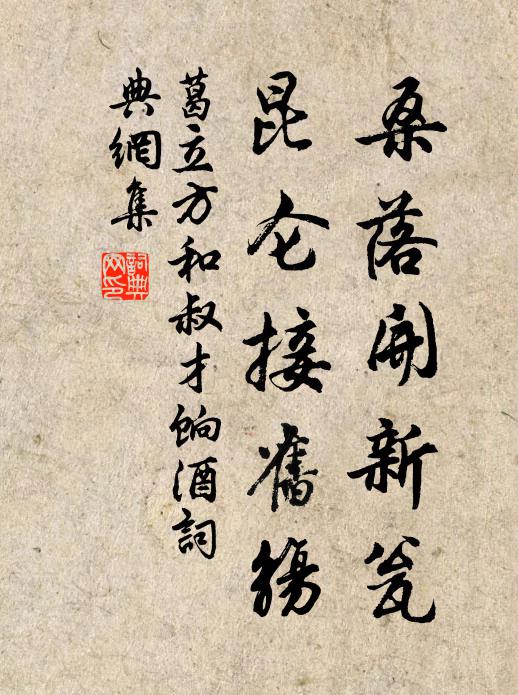 桑落開新瓮
昆仑接舊觴
葛立方和叔才餉酒詞
典網集
詞典網印